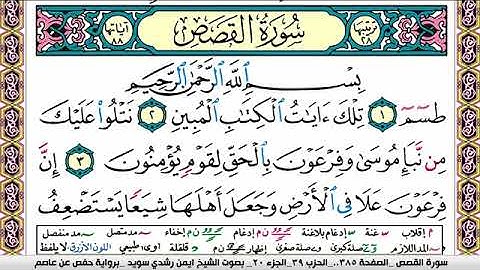 ترتيبها ٢٨ سُورَةُ القَصَصِ آياتها ٨٨
بِسْمِ ٱللَّهِ ٱلرَّحْمَٰنِ ٱلرَّحِيمِ
طسٓمٓ ١ تِلْكَ ءَايَٰتُ ٱلْكِتَٰبِ ٱلْمُبِينِ ٢ نَتْلُوا۟ عَلَيْكَ
مِن نَّبَإِ مُوسَىٰ وَفِرْعَوْنَ بِٱلْحَقِّ لِقَوْمٍ يُؤْمِنُونَ ٣ إِنَّ
فِرْعَوْنَ عَلَا فِى ٱلْأَرْضِ وَجَعَلَ أَهْلَهَا شِيَعًا يَسْتَضْعِفُ
م إقلاب غنة إدغام بلاغنة إدغام إخفاء مد متصل مد منفصل
المد اللازم صلة كبرى صلة صغرى إظهار قلقلة طبيعي اللون الأزرق لا يلفظ
سورة القصص _ الصفحة ٣٨٥.. الحزب ٣٩_ الجزء ٢٠ _ بصوت الشيخ ايمن رشدي سويد _ برواية حفص عن عاصم